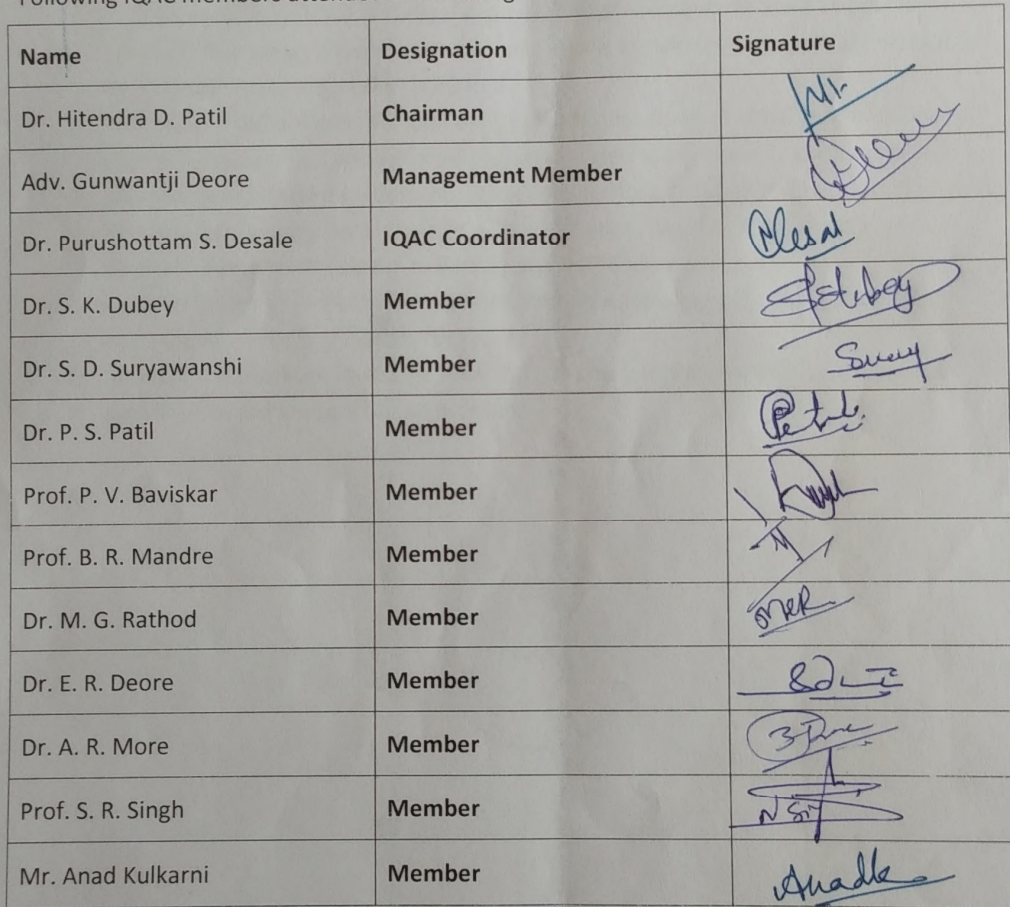 Following IQAC members attended
Name Designation Signature
Dr. Hitendra D. Patil Chairman
Adv. Gunwantji Deore Management Member
Dr. Purushottam S. Desale IQAC Coordinator
Dr. S. K. Dubey Member
Dr. S. D. Suryawanshi Member
Dr. P. S. Patil Member
Prof. P. V. Baviskar Member
Prof. B. R. Mandre Member
Dr. M. G. Rathod Member
Dr. E. R. Deore Member
Dr. A. R. More Member
Prof. S. R. Singh Member
Mr. Anad Kulkarni Member